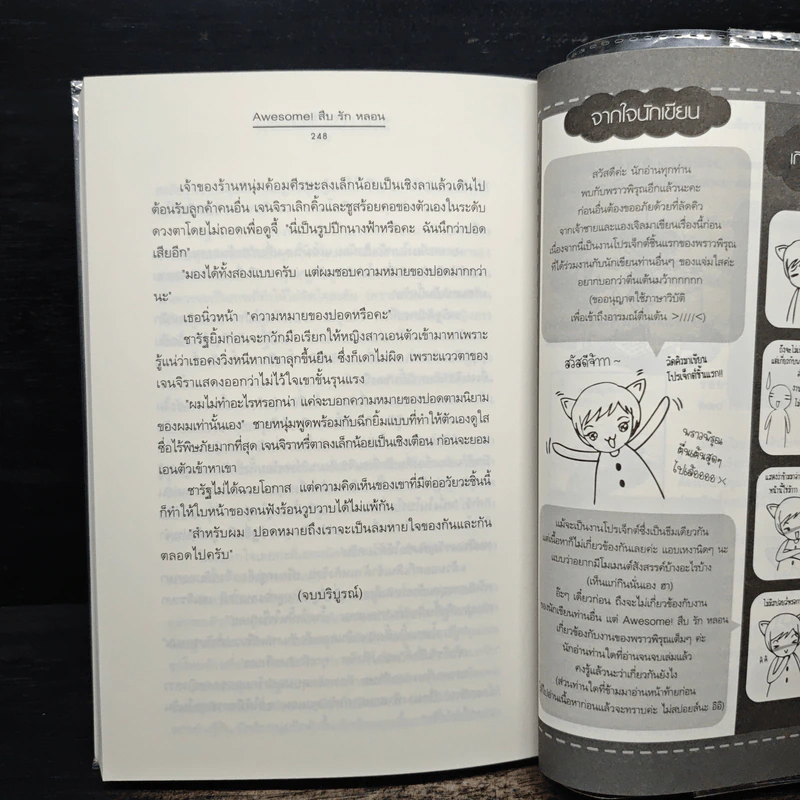 Awesome! สืบ รัก หลอน
248
เจ้าของร้านหนุ่มค้อมศีรษะลงเล็กน้อยเป็นเชิงลาแล้วเดินไป
ต้อนรับลูกค้าคนอื่น เจนจิราเลิกคิ้วและชูสร้อยคอของตัวเองในระดับ
ดวงตาโดยไม่ถอดเพื่อดูจี้ "นี่เป็นรูปปีกนางฟ้าหรือคะ ฉันนึกว่าปอด
เสียอีก"
"มองได้ทั้งสองแบบครับ แต่ผมชอบความหมายของปอดมากกว่า
นะ"
เธอนิ่วหน้า "ความหมายของปอดหรือคะ"
ชารัฐยิ้มก่อนจะกวักมือเรียกให้หญิงสาวเอนตัวเข้ามาหาเพราะ
รู้แน่ว่าเธอคงวิ่งหนีหากเขาลุกขึ้นยืน ซึ่งก็เดาไม่ผิด เพราะแววตาของ
เจนจิราแสดงออกว่าไม่ไว้ใจเขาขั้นรุนแรง
"ผมไม่ทำอะไรหรอกน่า แค่จะบอกความหมายของปอดตามนิยาม
ของผมเท่านั้นเอง" ชายหนุ่มพูดพร้อมกับฉีกยิ้มแบบที่ทำให้ตัวเองดูใส
ซื่อไร้พิษภัยมากที่สุด เจนจิราหรี่ตาลงเล็กน้อยเป็นเชิงเตือน ก่อนจะยอม
เอนตัวเข้าหาเขา
ชารัฐไม่ได้ฉวยโอกาส แต่ความคิดเห็นของเขาที่มีต่ออวัยวะชิ้นนี้
ก็ทำให้ใบหน้าของคนฟังร้อนวูบวาบได้ไม่แพ้กัน
"สำหรับผม ปอดหมายถึงเราจะเป็นลมหายใจของกันและกัน
ตลอดไปครับ"
(จบบริบูรณ์)
จากใจนักเขียน
สวัสดีค่ะ นักอ่านทุกท่าน
พบกับพราวพิรุณอีกแล้วนะคะ
ก่อนอื่นต้องขออภัยด้วยที่ลัดคิว
จากเจ้าชายและแองเจิลมาเขียนเรื่องนี้ก่อน
เนื่องจากนี่เป็นงานโปรเจ็กต์ชิ้นแรกของพราวพิรุณ
ที่ได้ร่วมงานกับนักเขียนท่านอื่นๆ ของแจ่มใสค่ะ
อยากบอกว่าตื่นเต้นมว้ากกกกก
(ขออนุญาตใช้ภาษาวิบัติ
เพื่อเข้าถึงอารมณ์ตื่นเต้น >////<)
สวัสดีจ้าาา ~
ลัดคิวมาเขียน
โปรเจ็กต์ชิ้นแรก!!
พราวพิรุณ
ตื่นเต้นสุดๆ
ไปเล้ออออ ><
แม้จะเป็นงานโปรเจ็กต์ซึ่งเป็นธีมเดียวกัน
แต่เนื้อหาก็ไม่เกี่ยวข้องกันเลยค่ะ แอบเหงานิดๆ นะ
แบบว่าอยากมีโมเมนต์สังสรรค์บ้างอะไรบ้าง
(เห็นแก่กินนั่นเอง ฮา)
อ๊ะๆ เดี๋ยวก่อน ถึงจะไม่เกี่ยวข้องกับงาน
ของนักเขียนท่านอื่น แต่ Awesome! สืบ รัก หลอน
เกี่ยวข้องกับงานของพราวพิรุณเต็มๆ ค่ะ
นักอ่านท่านใดที่อ่านจนจบเล่มแล้ว
คงรู้แล้วนะว่าเกี่ยวกันยังไง
(ส่วนท่านใดที่ข้ามมาอ่านหน้าท้ายก่อน
ไปอ่านเนื้อหาก่อนแล้วจะทราบค่ะ ไม่สปอยล์นะ อิอิ)